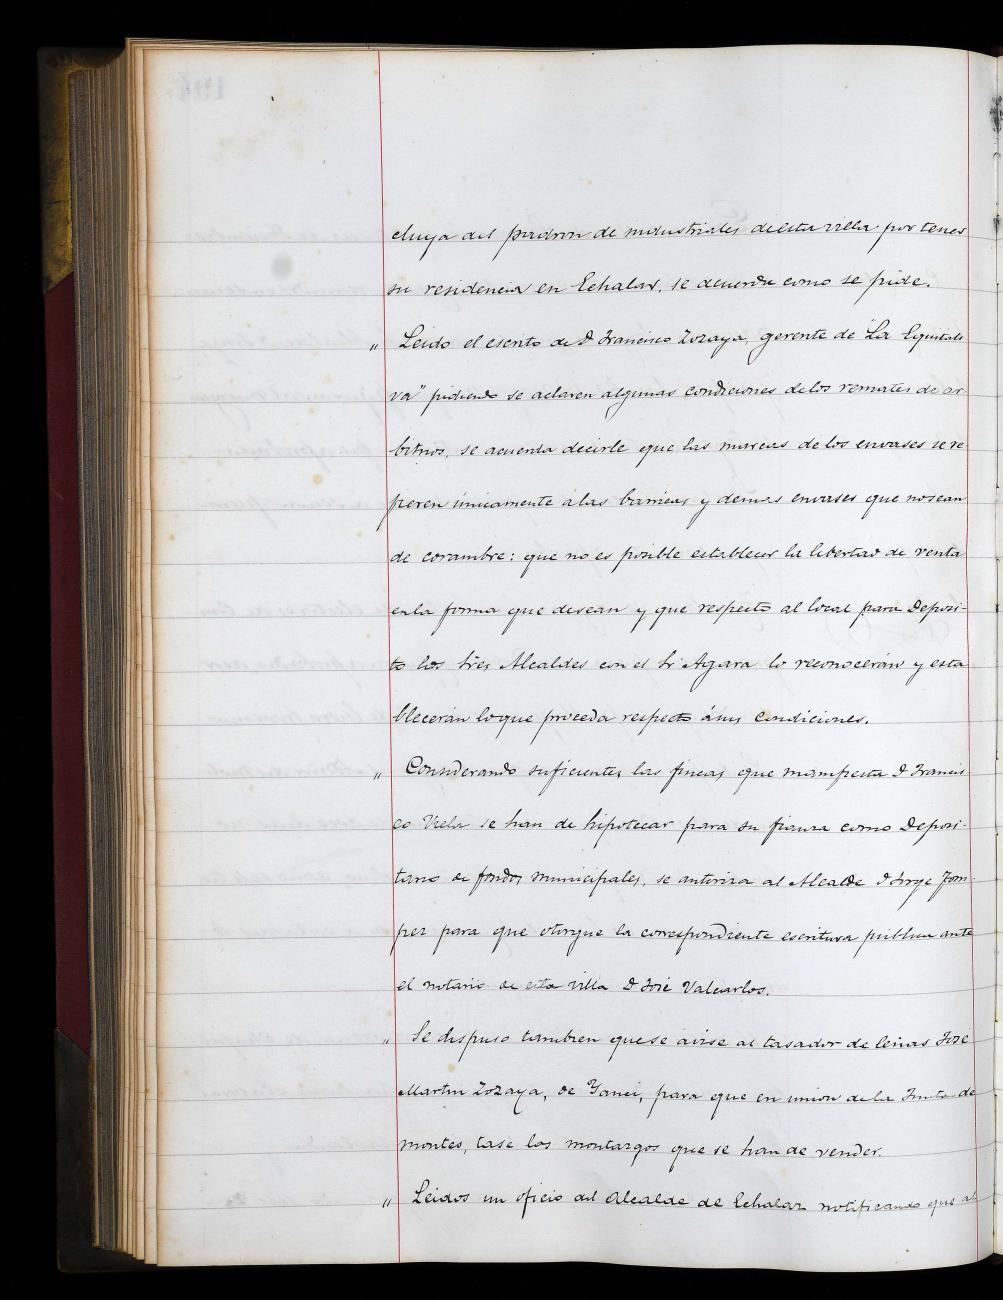 cluya del padron de industriales de esta villa por tener
su residencia en Echalar, se acuerda como se pide.
" Leido el escrito de D Francisco Zozaya, gerente de "La Equitati
va" pidiendo se aclaren algunas condiciones de los remates de ar-
bitrios, se acuerda decirle que las marcas de los envases se re-
fieren únicamente á las barricas y demas envases que no sean
de corambre: que no es posible establecer la libertad de venta
en la forma que desean y que respecto al local para Deposi-
to los tres Alcaldes con el Sr Agara lo reconocerán y esta
blecerán lo que proceda respecto á sus condiciones.
" Considerando suficientes las fincas que manifiesta D Francis-
co Vicla se han de hipotecar para su fianza como Deposi-
tario de fondos municipales, se autoriza al Alcalde D Jorge
para que otorgue la correspondiente escritura publica ante
el notario de esta villa D José Valcarlos.
" Se dispuso tambien que se avise al tasador de leñas José
Martin Zozaya, de Yanci, para que en union de la Junta de
montes, tase los montazgos que se han de vender.
" Leidos un oficio del Alcalde de Echalar notificando que al